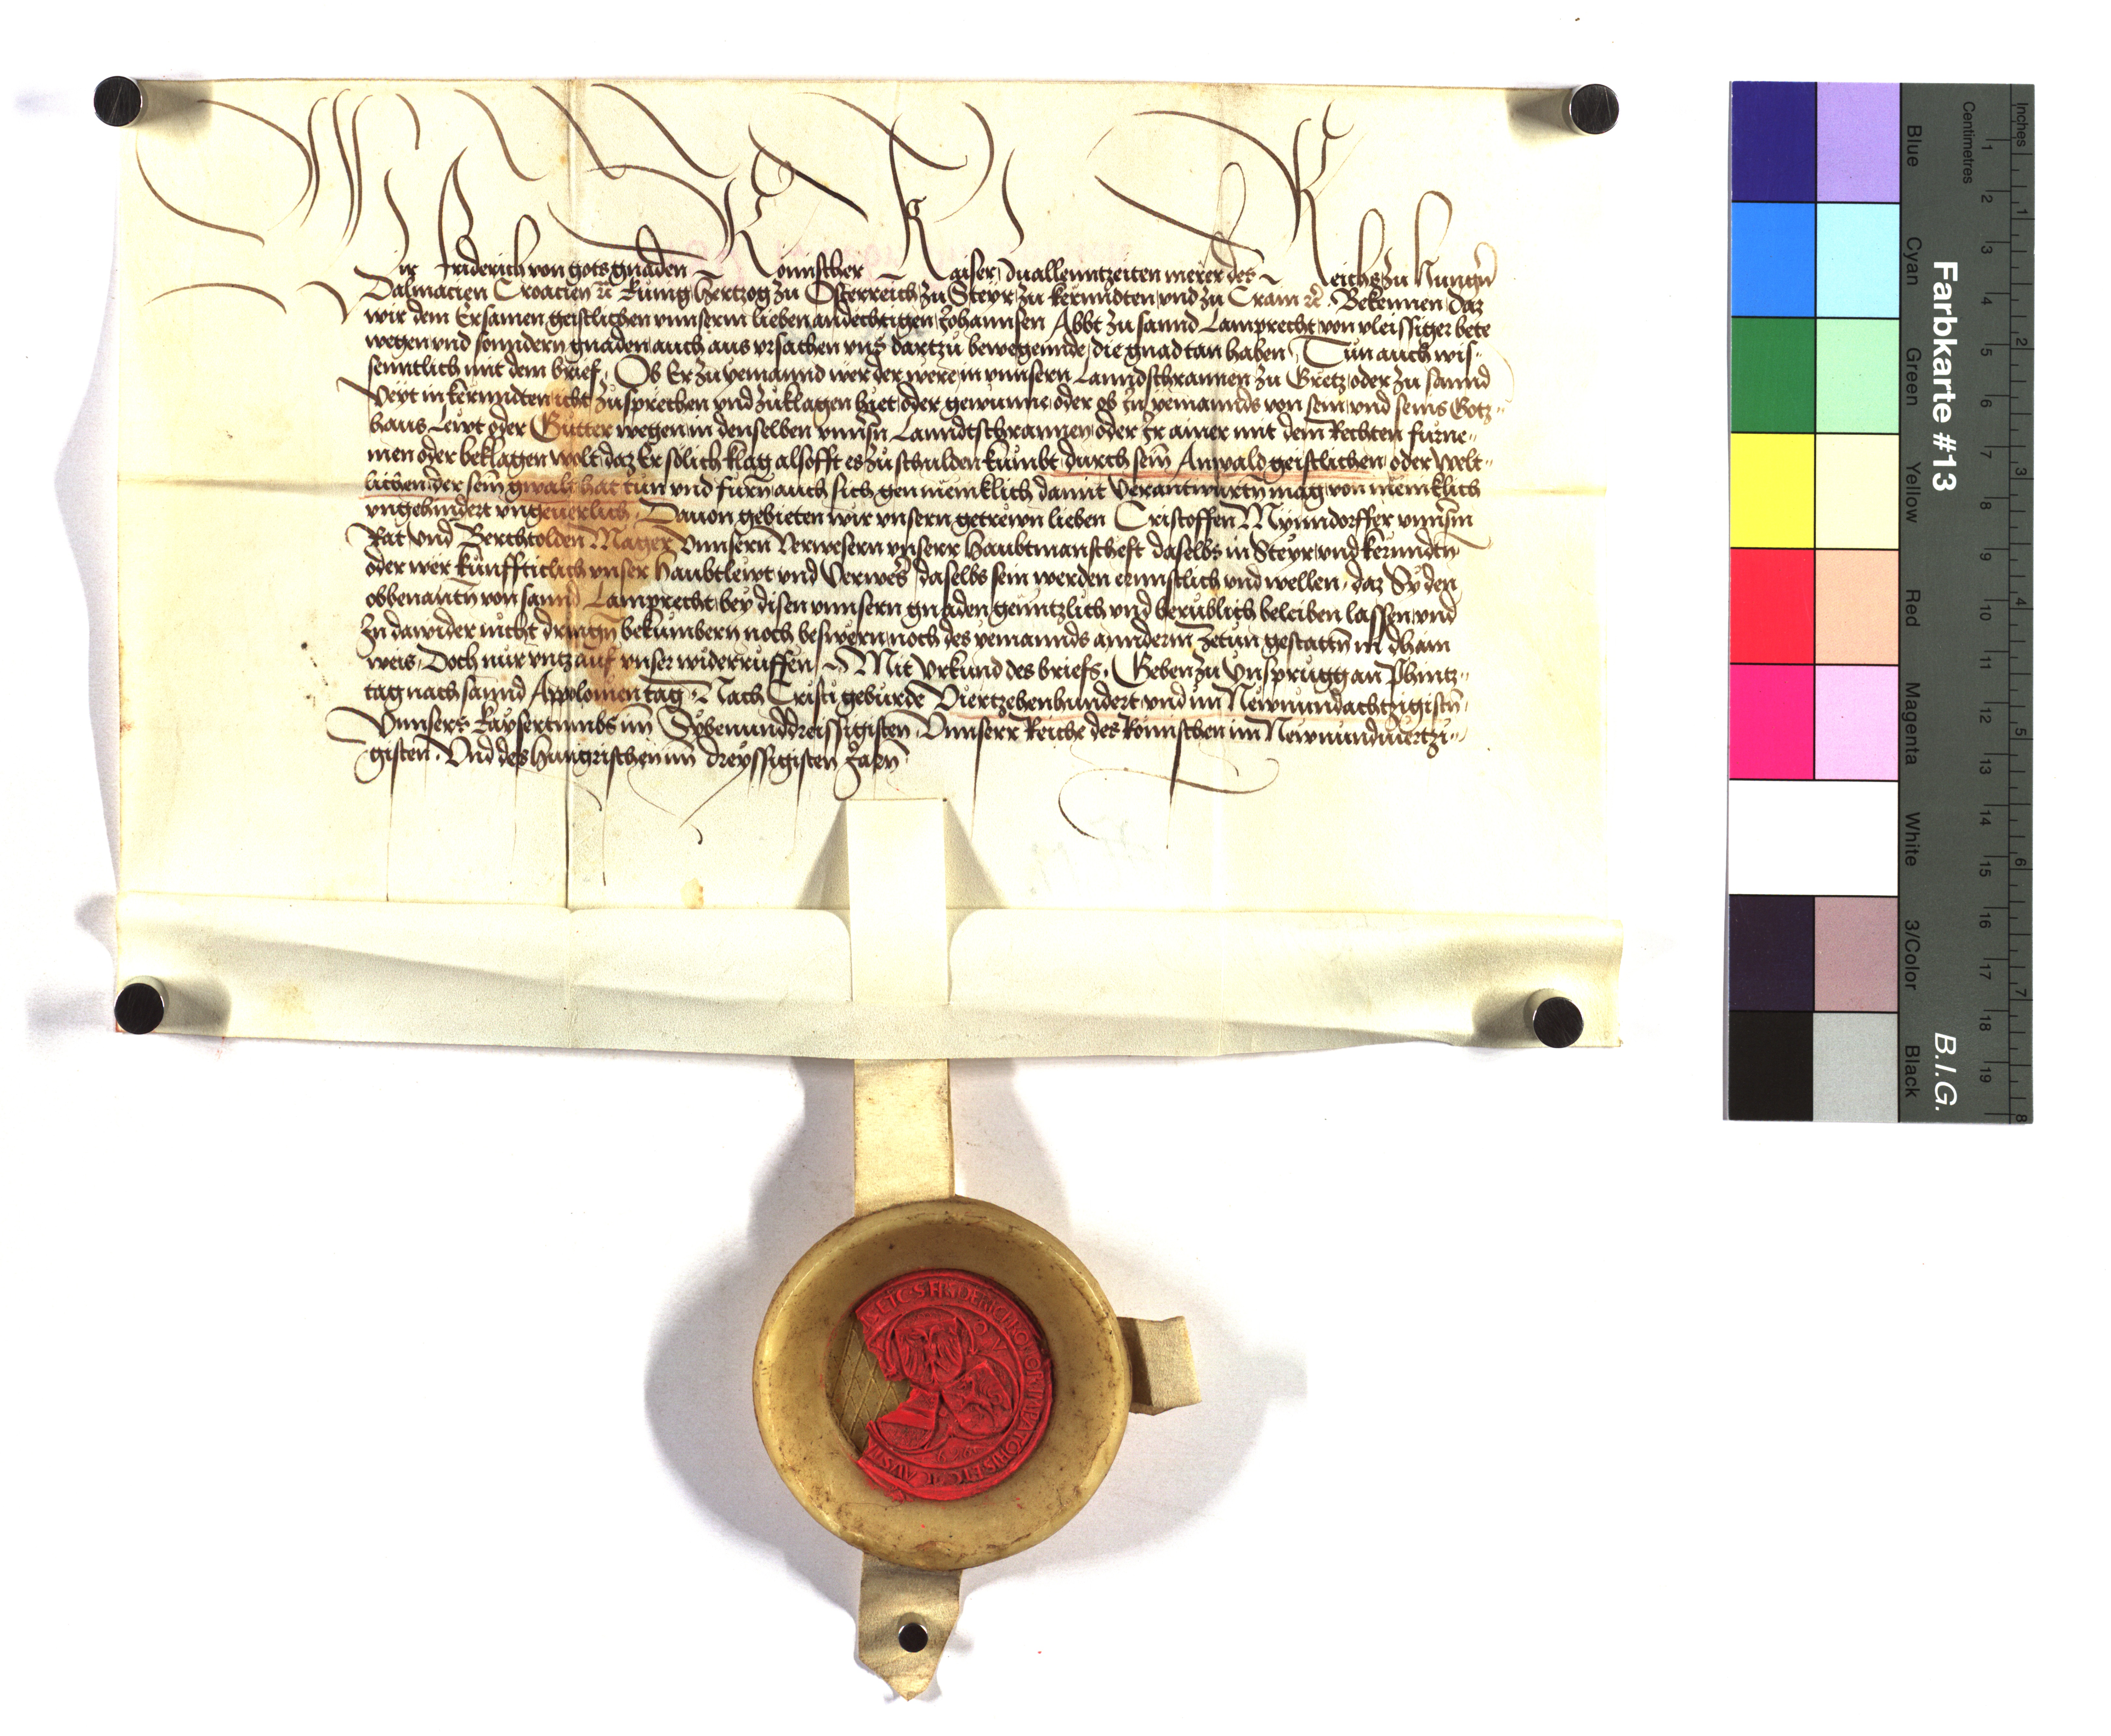 Wir Friderich von gots gnaden Romischer Kaiser zuallenntzeiten merer des Reichs zu Hungrn
Dalmacien Croacien etc Kunig Hertzog zu Osterreich zu Steyr zu kernndten und zu Crain etc Bekennen daz
wir dem Ersamen geistlichen vnnserm lieben andechtigen Johannsen Abbt zu sannd Lamprecht von vleissiger bete
wegen und sonndern gnaden auch aus vrsachen vns dartzu bewegennde die gnad tan haben Tun auch wis-
senntlich mit dem brief Ob Er zu yemannd wer der were in vnnsern Lanndschrannen zu Gretz oder zu sannd
Veyt in kernndten icht zusprechen und zuklagen hiet oder gewunne oder ob In yemannds von sein und seins Gotz-
haus Lewt oder Gutter wegen in denselben vnnsrn Lanndtschrannen oder Ir ainer mit dem Rechten furne-
men oder beklagen wolt daz Er solich klag alsofft es zu schulden kumbt durch sein Anwald geistlichen oder welt-
lichen der sein gwalt hat tun und furn auch sich gen meniklich damit verantwurtn mag von meniklich
vngehindert vngeuerlich Dauon gebieten wir vnsern getrewn lieben Cristoffen Mynndorffer vnnsrm
Rat und Berchtolden Mager vnnsern Verwesern vnserr Haubtmanscheft daselbs in Steyr und kernndtn
oder wer kunffticlich vnser Haubtlewt und Verweser daselbs sein werden ernnstlich und wellen daz Sy den
obbenantn von sannd Lamprecht bey disen vnnsern gnaden genntzlich und berublich beleiben lassen und
In dawider nicht dringn bekumbern noch beswern noch des yemannds anndern zetun gestattn in dhain
weis Doch nur vntz auf vnser widerruffen Mit Vrkund des briefs Geben zu Ynsprugg an Phintz-
tag nach sannd Appolonien tag Nach Cristi geburde Viertzehenhundert und im Newnundachtzigistn
Vnnsers Kaysertumbs im Sybenunddreissigisten Vnnserr Reiche des Romischen im Newnundviertzi-
gisten Und des Hungrischen im dreyssigisten Jarn
ETC S FRIDERICI ROMOR IMPATORIS ETC
Farbkarte #13
B.I.G.
Inches
1 2 3 4 5 6 7 8
Centimetres
1 2 3 4 5 6 7 8 9 10 11 12 13 14 15 16 17 18 19
Blue
Cyan
Green
Yellow
Red
Magenta
White
3/Color
Black